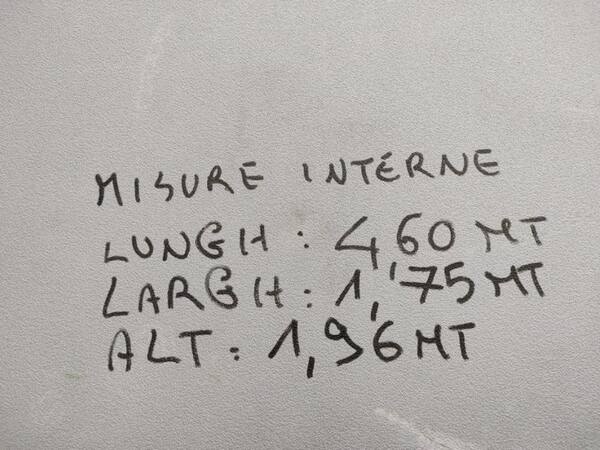 MISURE INTERNE
LUNGH: 4,60 MT
LARGH: 1,75 MT
ALT: 1,96 MT